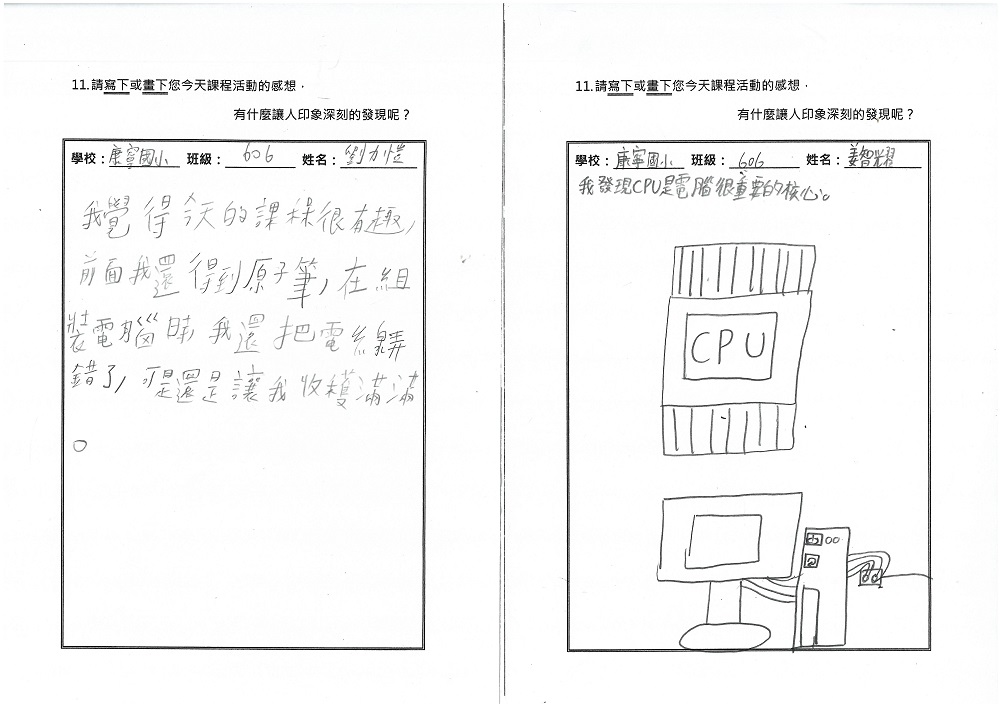 11.請寫下或畫下您今天課程活動的感想，
有什麼讓人印象深刻的發現呢？
學校：康寧國小 班級：606 姓名：劉力愷
我覺得今天的課程很有趣，
前面我還得到原子筆，在組
裝電腦時，我還把電線弄
錯了，可是還是讓我收穫滿滿
。
11.請寫下或畫下您今天課程活動的感想，
有什麼讓人印象深刻的發現呢？
學校：康寧國小 班級：606 姓名：姜智耀
我發現CPU是電腦很重要的核心。
CPU